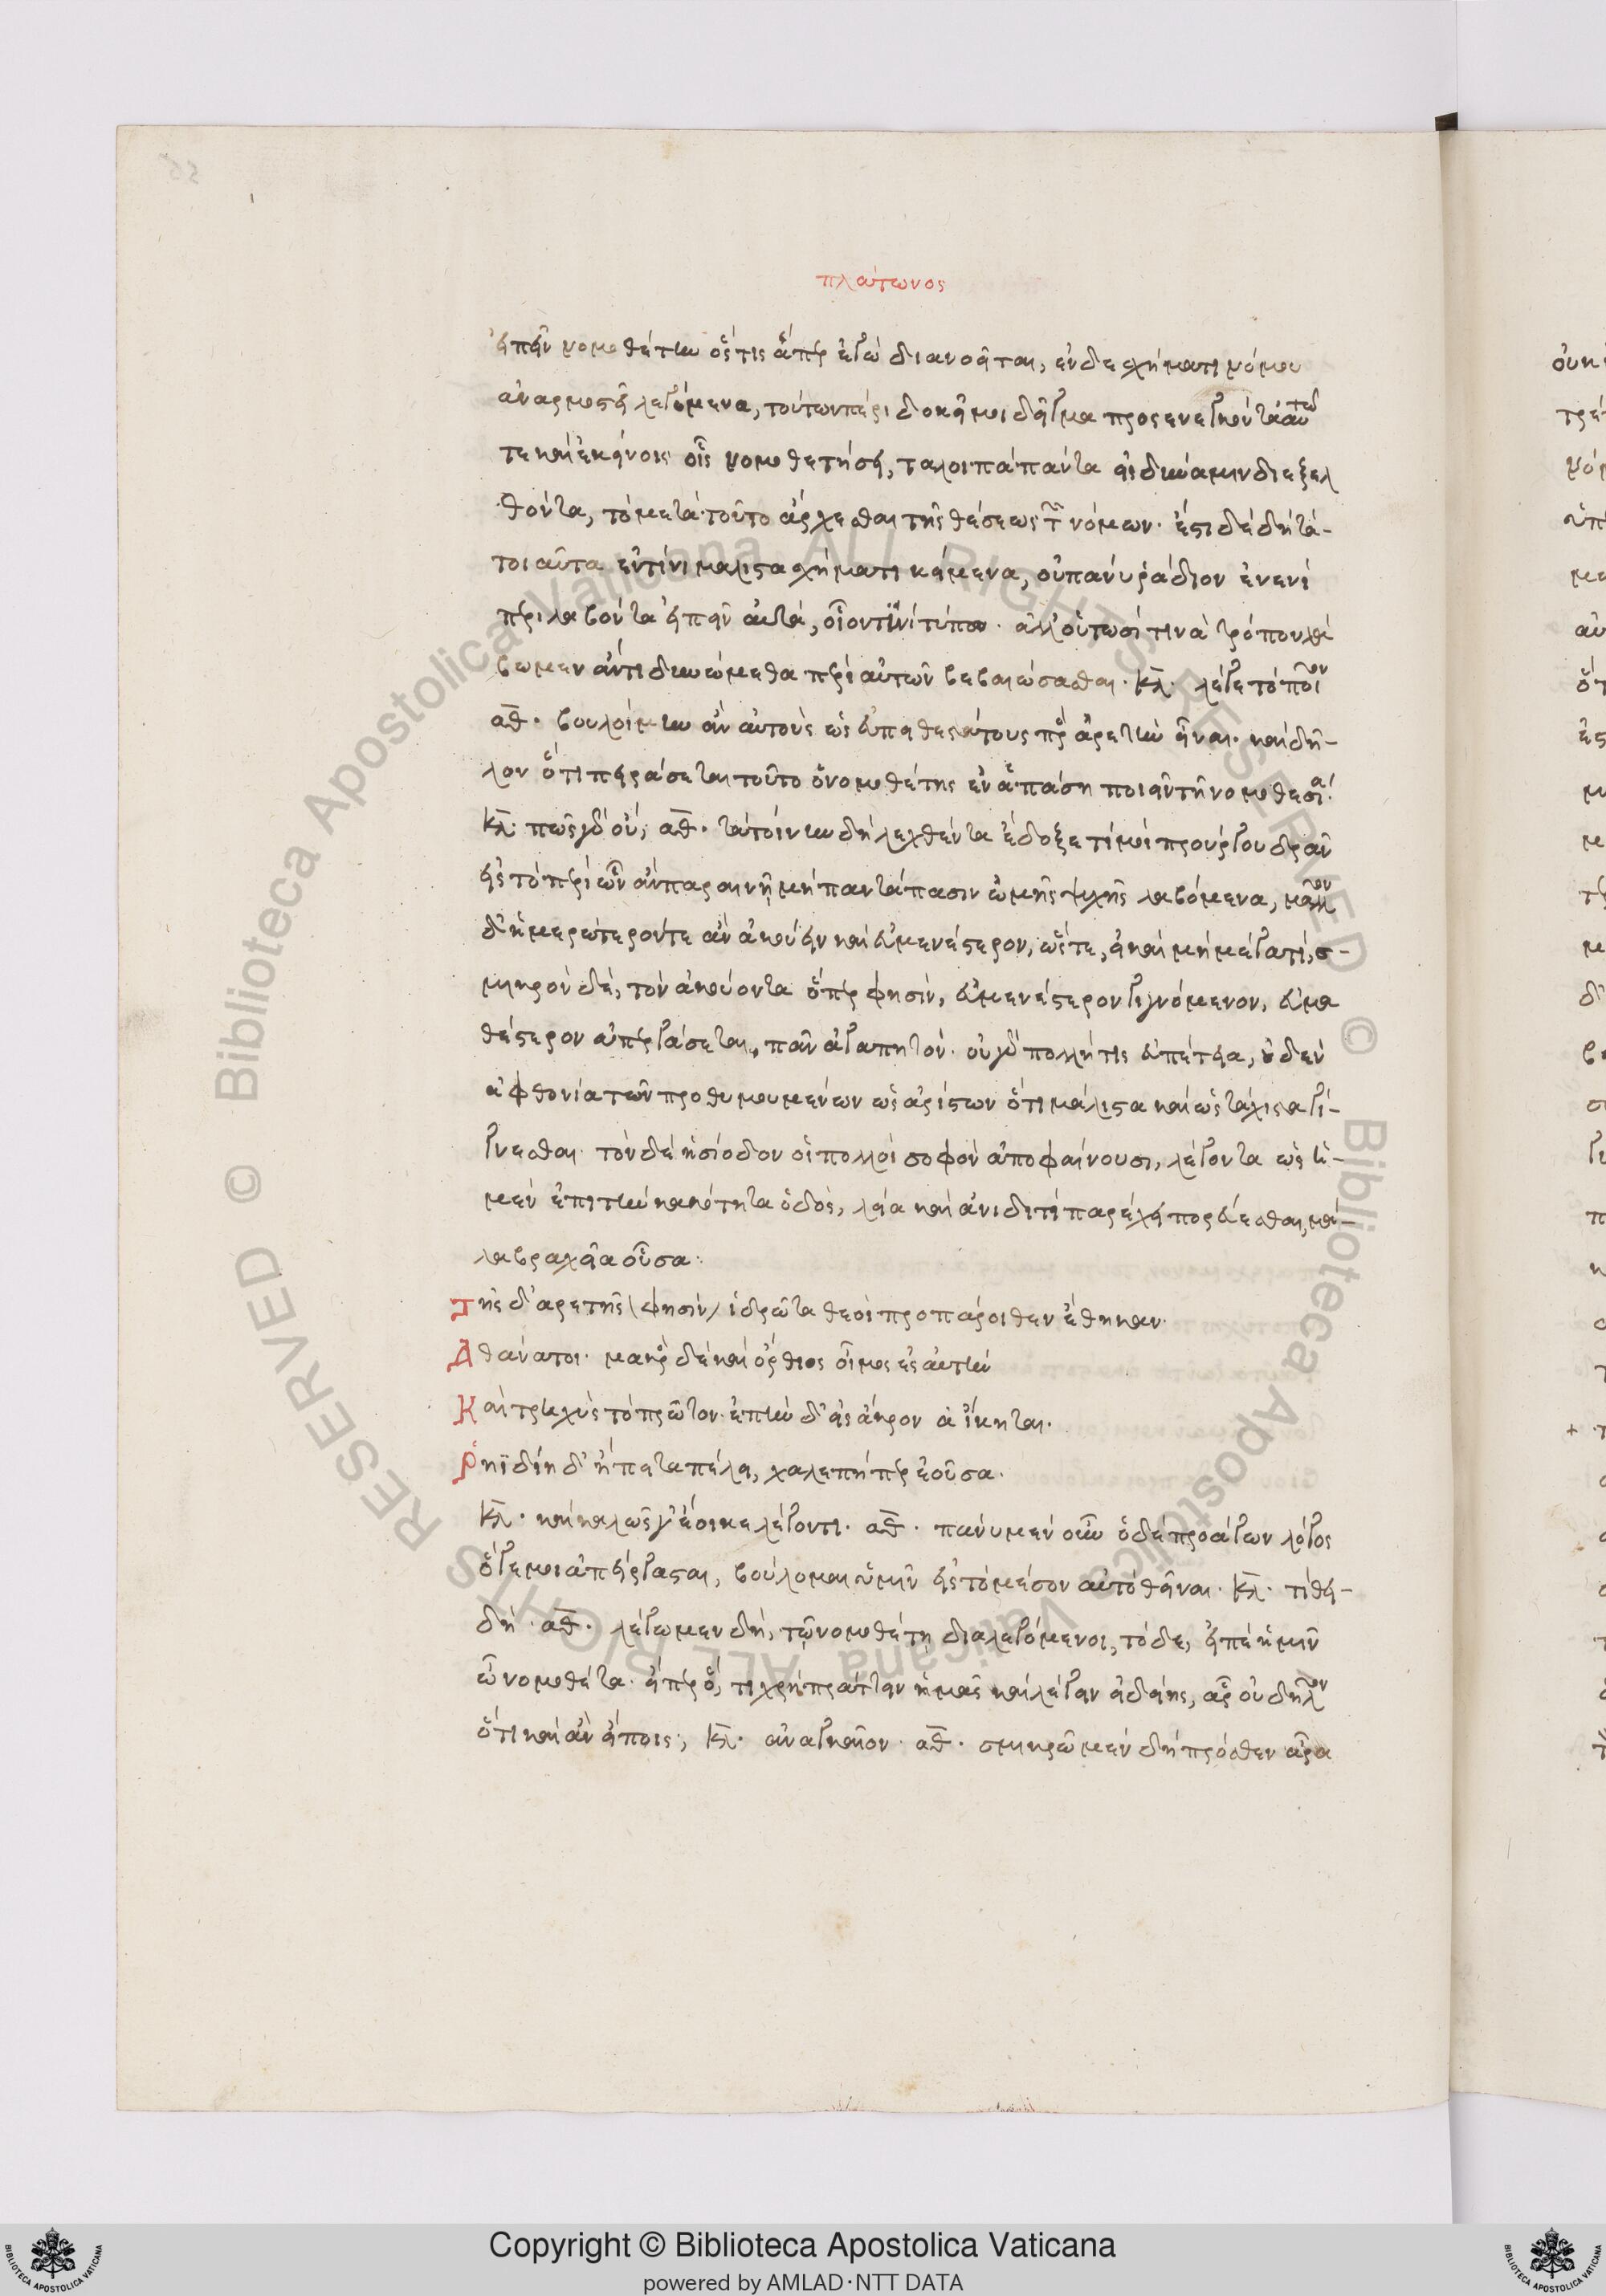 πλάτωνος
εἰπεῖν νομοθέτην ὅστις ἅπερ ἐγὼ διανοεῖται, ἐν δὲ σχήματι νόμου
ἀναρμοστεῖ λεγόμενα, τούτων πέρι δοκεῖ μοι δεῖγμα προσενεγκόντα αὐτῷ
τε καὶ ἐκείνοις οἷς νομοθετήσει, τὰ λοιπὰ πάντα εἰς δύναμιν διεξελ
θόντα, τὸ μετὰ τοῦτο ἄρχεσθαι τῆς θέσεως τῶν νόμων. ἔστι δὲ δὴ τὰ
τοιαῦτα ἐν τίνι μάλιστα σχήματι κείμενα, οὐ πάνυ ῥάδιον ἐν ἑνὶ
περιλαβόντα εἰπεῖν αὐτά, οἷον τινὶ τύπῳ. ἀλλ' οὑτωσί τινα τρόπον λά
βωμεν ἄν τι δυνώμεθα περὶ αὐτῶν βεβαιώσασθαι. κλ. λέγε τὸ ποῖον
αθ. βουλοίμην ἂν αὐτοὺς ὡς εὐπειθεστάτους πρὸς ἀρετὴν εἶναι. καὶ δῆ-
λον ὅτι πειράσεται τοῦτο ὁ νομοθέτης ἐν ἁπάσῃ ποιεῖν τῇ νομοθεσίᾳ.
κλ. πῶς γὰρ οὔ; αθ. τὰ τοίνυν δὴ λεχθέντα ἔδοξέ τί μοι προύργου δρᾶν
εἰς τὸ περὶ ὧν ἂν παραινῇ μὴ παντάπασιν ὠμῆς ψυχῆς λαβόμενα, μᾶλλον
δ' ἡμερώτερόν τε ἂν ἀκούειν καὶ εὐμενέστερον, ὥστε, εἰ καὶ μὴ μέγα τι, σ-
μικρὸν δέ, τὸν ἀκούοντα ὅπερ φησίν, εὐμενέστερον γιγνόμενον, εὐμα
θέστερον ἀπεργάσεται, πᾶν ἀγαπητόν. οὐ γὰρ πολλή τις εὐπέτεια, οὐδὲν
ἀφθονία τῶν προθυμουμένων ὡς ἀρίστων ὅτι μάλιστα καὶ ὡς τάχιστα γί-
γνεσθαι. τὸν δὲ ἡσίοδον οἱ πολλοὶ σοφὸν ἀποφαίνουσι, λέγοντα ὡς ἡ
μὲν ἐπὶ τὴν κακότητα ὁδός, λεία καὶ ἀνιδιτὶ παρέχει πορεύεσθαι, μά-
λα βραχεῖα οὖσα.
Τῆς δ' ἀρετῆς (φησίν) ἱδρῶτα θεοὶ προπάροιθεν ἔθηκαν.
Ἀθάνατοι. μακρὸς δὲ καὶ ὄρθιος οἶμος ἐς αὐτὴν
Καὶ τρηχὺς τὸ πρῶτον. ἐπὴν δ' εἰς ἄκρον ἀΐκηται.
Ῥηϊδίη δ' ἤπειτα πέλει, χαλεπή περ ἐοῦσα.
κλ. καὶ καλῶς γ' ἔοικε λέγοντι. αθ. πάνυ μὲν οὖν ὁ δὲ προάγων λόγος
ὅ γε μοι ἀπείργασται, βούλομαι ὑμῖν εἰς τὸ μέσον αὐτὸ θεῖναι. κλ. τίθει
δή. αθ. λέγωμεν δή, τῷ νομοθέτῃ διαλεγόμενοι, τόδε, εἰπὲ ἡμῖν
ὦ νομοθέτα. εἴπερ ὅ, τι χρὴ πράττειν ἡμᾶς καὶ λέγειν εἰδείης, ἆρ' οὐ δῆλον
ὅτι καὶ ἂν εἴποις; κλ. ἀναγκαῖον. αθ. σμικρῷ μὲν δὴ πρόσθεν ἆρα
Copyright © Biblioteca Apostolica Vaticana
powered by AMLAD·NTT DATA